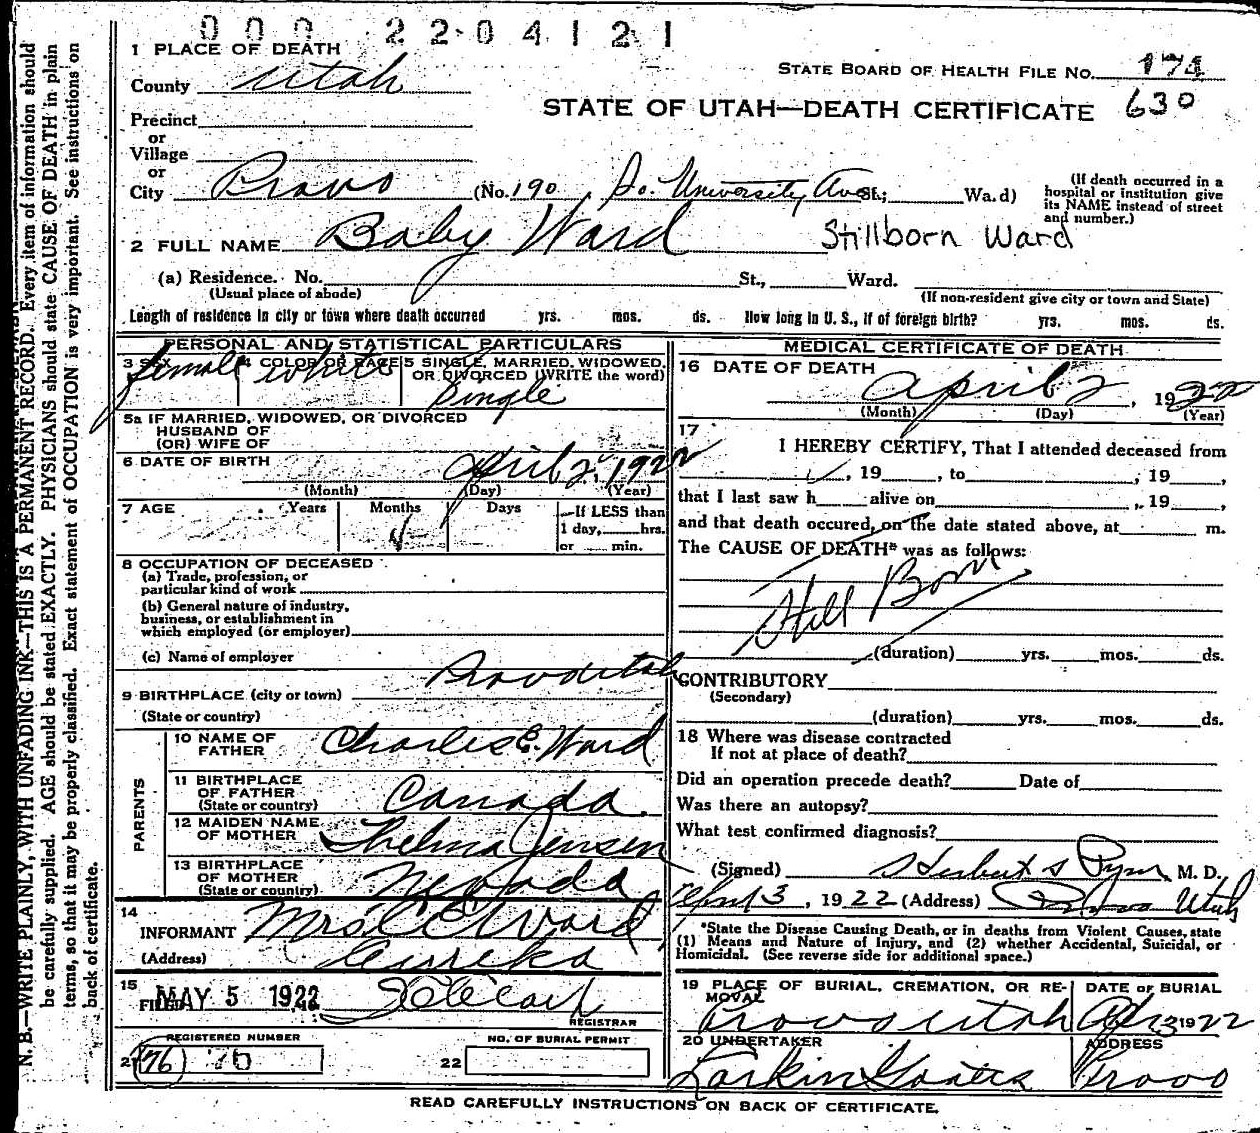 000 2204121
1 PLACE OF DEATH
County Utah
STATE BOARD OF HEALTH FILE NO. 174
STATE OF UTAH—DEATH CERTIFICATE 630
Precinct
or
Village
or
City Provo (No. 190, So. University Ave St.; Wa.d)
(If death occurred in a hospital or institution give its NAME instead of street and number.)
2 FULL NAME Baby Ward Stillborn Ward
(a) Residence. No. St., Ward.
(Usual place of abode) (If non-resident give city or town and State)
Length of residence in city or town where death occurred yrs. mos. ds. How long in U. S., if of foreign birth? yrs. mos. ds.
PERSONAL AND STATISTICAL PARTICULARS
3 SEX female 4 COLOR OR RACE white 5 SINGLE, MARRIED, WIDOWED, OR DIVORCED (WRITE the word) Single
5a IF MARRIED, WIDOWED, OR DIVORCED
HUSBAND OF
(OR) WIFE OF
6 DATE OF BIRTH April 2, 1922
(Month) (Day) (Year)
7 AGE Years Months Days If LESS than
1 day, hrs.
or min.
8 OCCUPATION OF DECEASED
(a) Trade, profession, or
particular kind of work
(b) General nature of industry,
business, or establishment in
which employed (or employer)
(c) Name of employer
9 BIRTHPLACE (city or town) Provo Utah
(State or country)
PARENTS
10 NAME OF FATHER Charles E. Ward
11 BIRTHPLACE OF FATHER (State or country) Canada.
12 MAIDEN NAME OF MOTHER Thelma Jensen
13 BIRTHPLACE OF MOTHER (State or country) Nevada
14
INFORMANT Mrs C E Ward
(Address) Eureka
15
FILED MAY 5 1922
REGISTRAR
REGISTERED NUMBER NO. OF BURIAL PERMIT
21 (76) 76 22
MEDICAL CERTIFICATE OF DEATH
16 DATE OF DEATH
April 2, 1922
(Month) (Day) (Year)
17
I HEREBY CERTIFY, That I attended deceased from
, 19 , to , 19 ,
that I last saw h alive on , 19 ,
and that death occured, on the date stated above, at m.
The CAUSE OF DEATH* was as follows:
Still Born
(duration) yrs. mos. ds.
CONTRIBUTORY
(Secondary)
(duration) yrs. mos. ds.
18 Where was disease contracted
If not at place of death?
Did an operation precede death? Date of
Was there an autopsy?
What test confirmed diagnosis?
(Signed) Herbert S Pyne, M. D.
April 3, 1922 (Address) Provo Utah
*State the Disease Causing Death, or in deaths from Violent Causes, state
(1) Means and Nature of Injury, and (2) whether Accidental, Suicidal, or
Homicidal. (See reverse side for additional space.)
19 PLACE OF BURIAL, CREMATION, OR RE- DATE OF BURIAL
MOVAL
Provo Utah Apr 3 1922
20 UNDERTAKER ADDRESS
Larkin Provo
READ CAREFULLY INSTRUCTIONS ON BACK OF CERTIFICATE.
N. B.—WRITE PLAINLY, WITH UNFADING INK—THIS IS A PERMANENT RECORD. Every item of information should
be carefully supplied. AGE should be stated EXACTLY. PHYSICIANS should state CAUSE OF DEATH in plain
terms, so that it may be properly classified. Exact statement of OCCUPATION is very important. See instructions on
back of certificate.